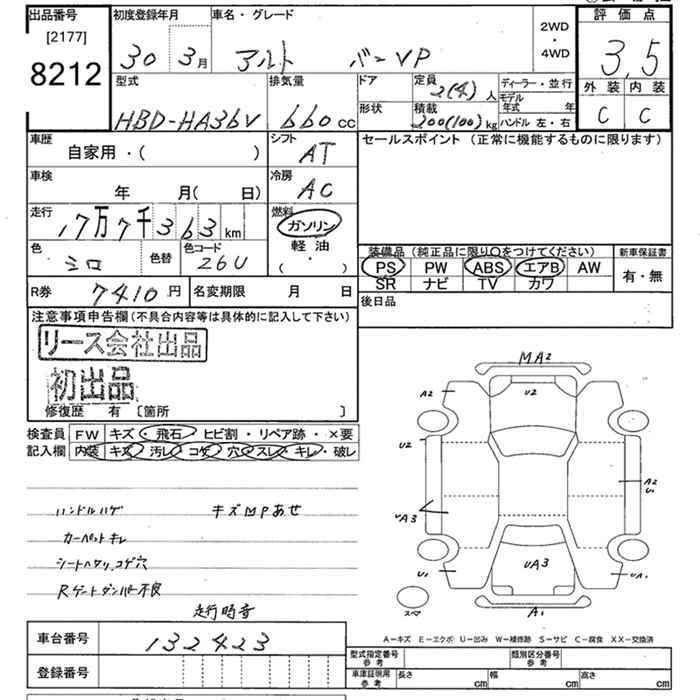 出品番号 初度登録年月 車名・グレード 評価点
[2177]
8212
30 3月 アルト バーVP 2WD・4WD 3.5
型式 排気量 ドア 定員 ディーラー・並行 外装 内装
HBD-HA36V 660cc 2(4)人 モデル年式 年 C C
形状 積載 200(100)kg ハンドル 左・右
車歴 シフト セールスポイント (正常に機能するものに限ります)
自家用・( ) AT
車検 冷房
年 月( 日) AC
走行 燃料
17万7千363km ガソリン
軽油
・( )
色 シロ 色替 色コード 26U
装備品 (純正品に限り○をつけてください) 新車保証書
PS PW ABS エアB AW 有・無
SR ナビ TV カワ
R券 7410円 名変期限 月 日 後日品
注意事項申告欄(不具合内容等は具体的に記入して下さい)
リース会社出品
初出品
修復歴 有 〔箇所 〕
検査員 FW キズ・飛石・ヒビ割・リペア跡・×要
記入欄 内装 キズ・汚レ・コゲ・穴・スレ・キレ・破レ
ハンドルハゲ キズMPあせ
カーペットキレ
シートヘタリ、コゲ穴
Rゲートダンパー不良
走行時音
MA2
A2 U2
U2
A2
U1
UA3
UA3
U1 UA1
スマ A1
A-キズ E-エクボ U-凹み W-補修跡 S-サビ C-腐食 XX-交換済
車台番号 132423
型式指定番号 参考 類別区分番号 参考
登録番号
車庫証明用 参考 長さ cm 幅 cm 高さ cm